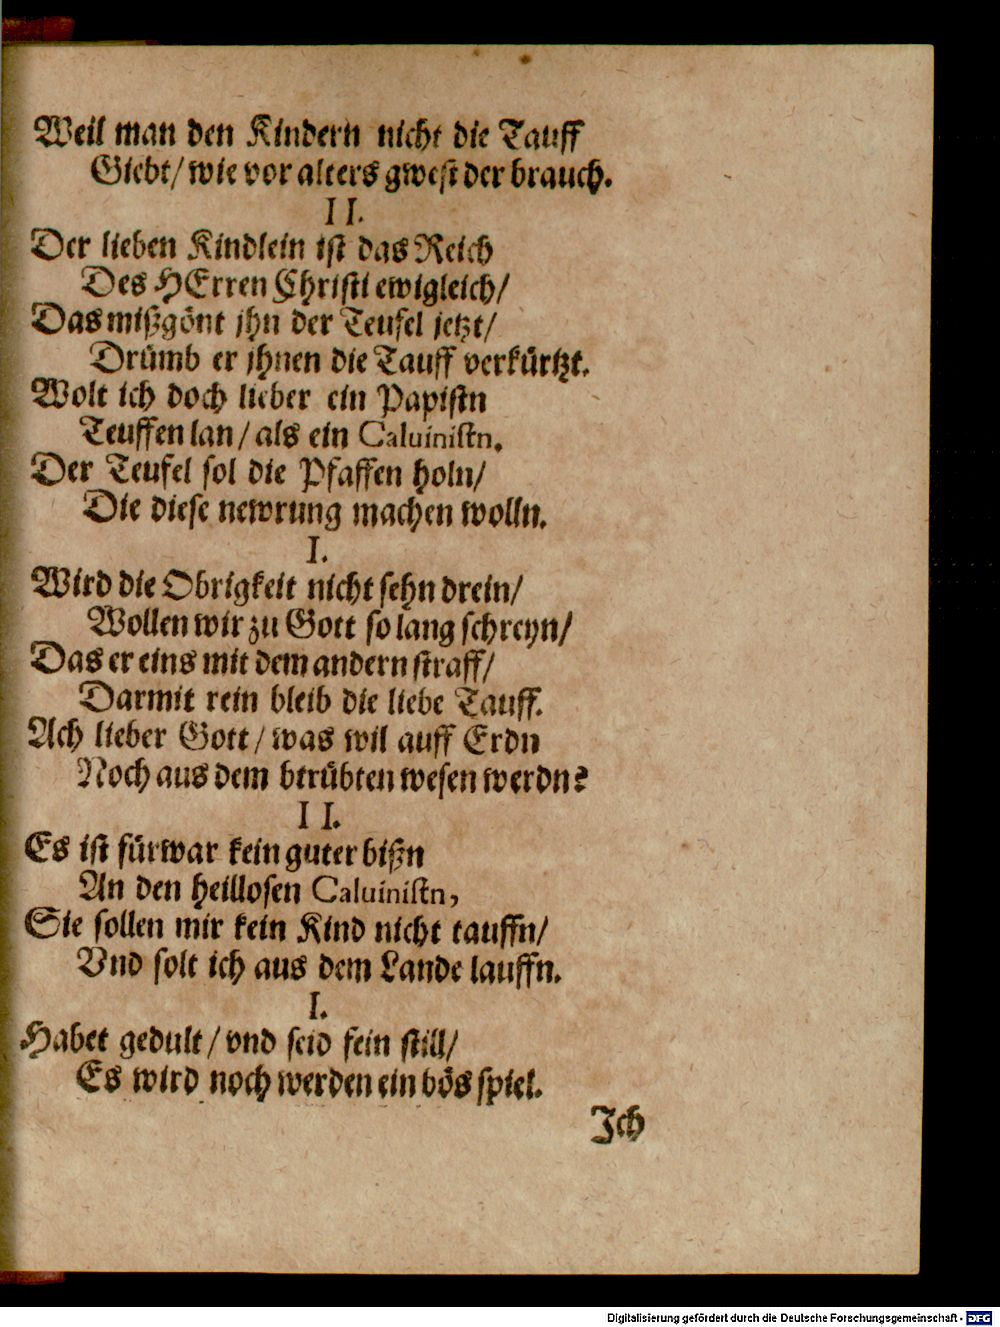 Weil man den Kindern nicht die Tauff
Giebt/ wie vor alters gwest der brauch.
II.
Der lieben Kindlein ist das Reich
Des HErren Christi ewigleich/
Das mißgönt jhn der Teufel jetzt/
Drümb er jhnen die Tauff verkürtzt.
Wolt ich doch lieber ein Papistn
Teuffen lan/ als ein Caluinistn.
Der Teufel sol die Pfaffen holn/
Die diese newrung machen wolln.
I.
Wird die Obrigkeit nicht sehn drein/
Wollen wir zu Gott so lang schreyn/
Das er eins mit dem andern straff/
Darmit rein bleib die liebe Tauff.
Ach lieber Gott/ was wil auff Erdn
Noch aus dem btrübten wesen werdn?
II.
Es ist fürwar kein guter bißn
An den heillosen Caluinistn,
Sie sollen mir kein Kind nicht tauffn/
Vnd solt ich aus dem Lande lauffn.
I.
Habet gedult/ vnd seid fein still/
Es wird noch werden ein bös spiel.
Jch
Digitalisierung gefördert durch die Deutsche Forschungsgemeinschaft - DFG